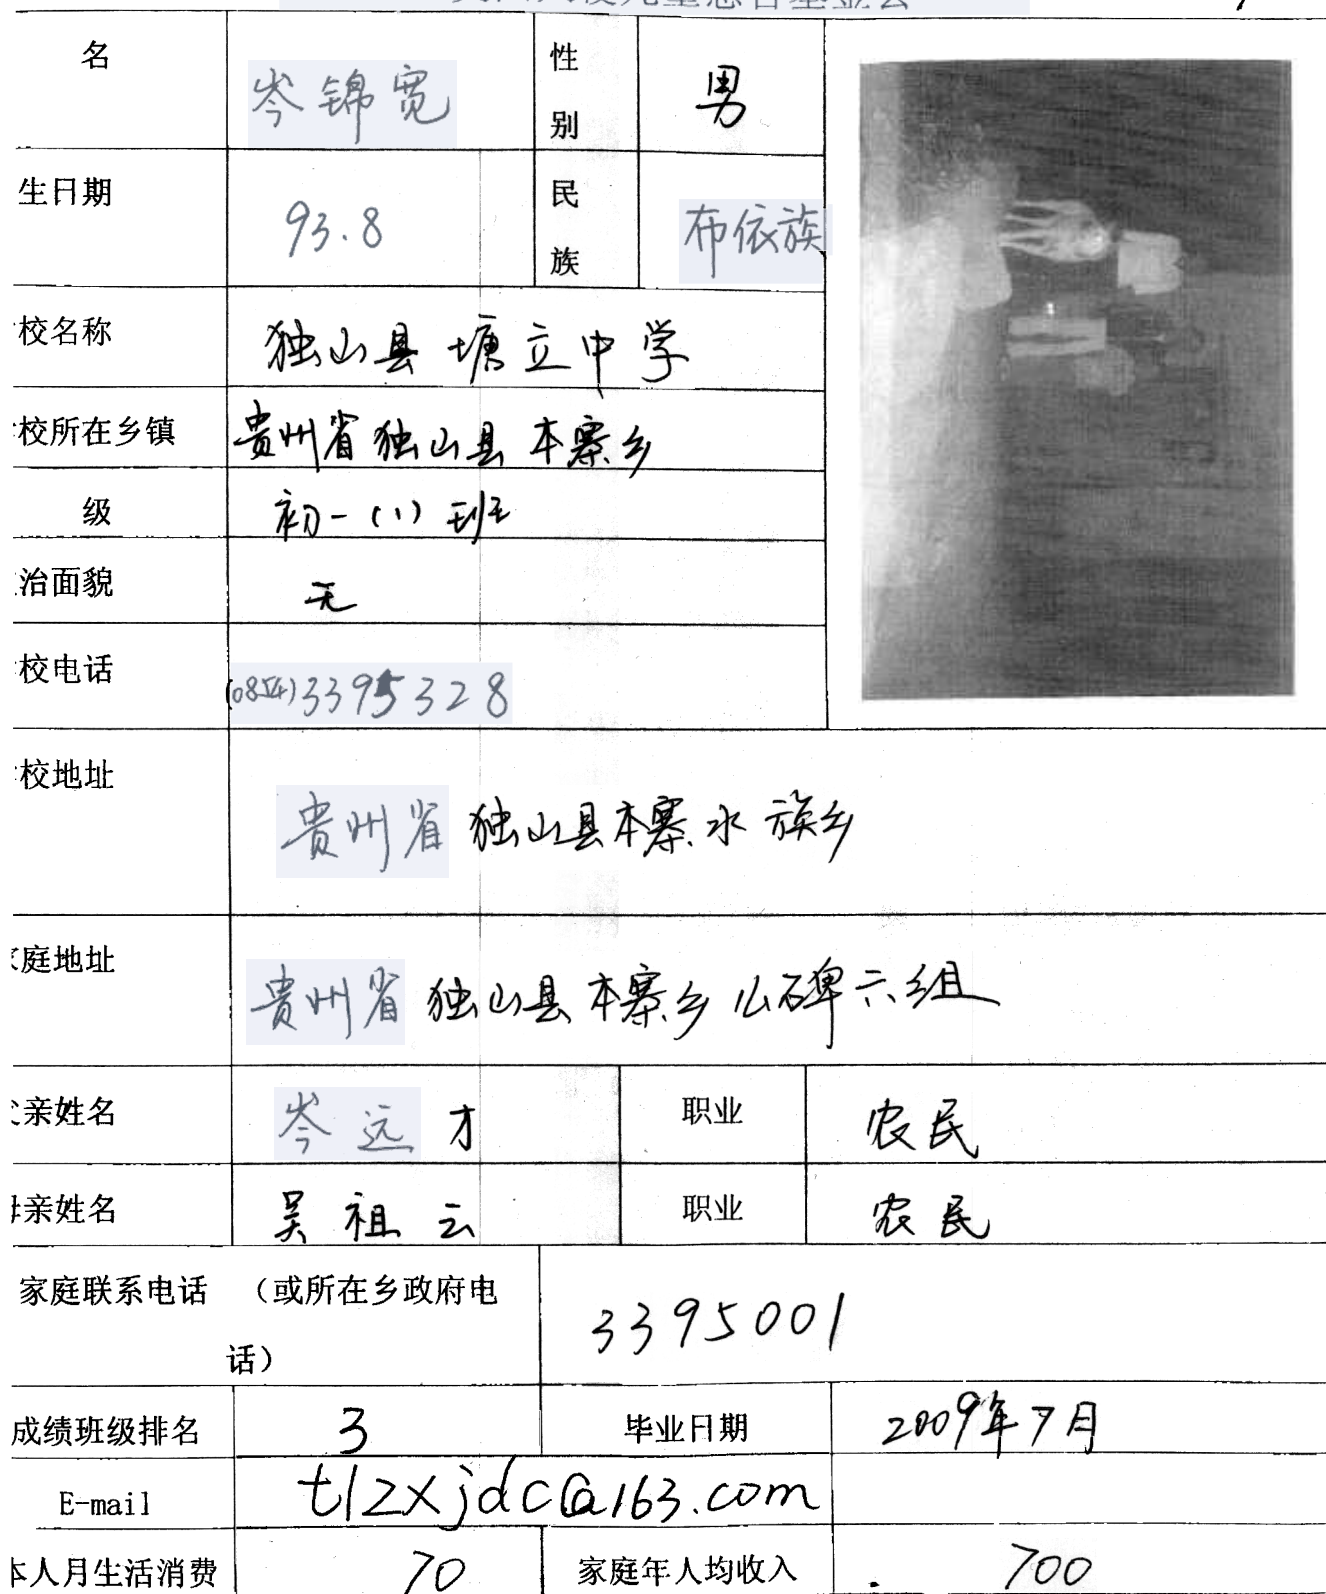 名 岑锦宽 性别 男
生日期 93.8 民族 布依族
校名称 独山县塘立中学
校所在乡镇 贵州省独山县本寨乡
级 初一(1)班
治面貌 无
校电话 (0854)3395328
校地址 贵州省独山县本寨水族乡
庭地址 贵州省独山县本寨乡 碑六组
亲姓名 岑远才 职业 农民
亲姓名 吴祖云 职业 农民
家庭联系电话 （或所在乡政府电
话） 3395001
成绩班级排名 3 毕业日期 2009年7月
E-mail tlzxjdc@163.com
本人月生活消费 70 家庭年人均收入 700